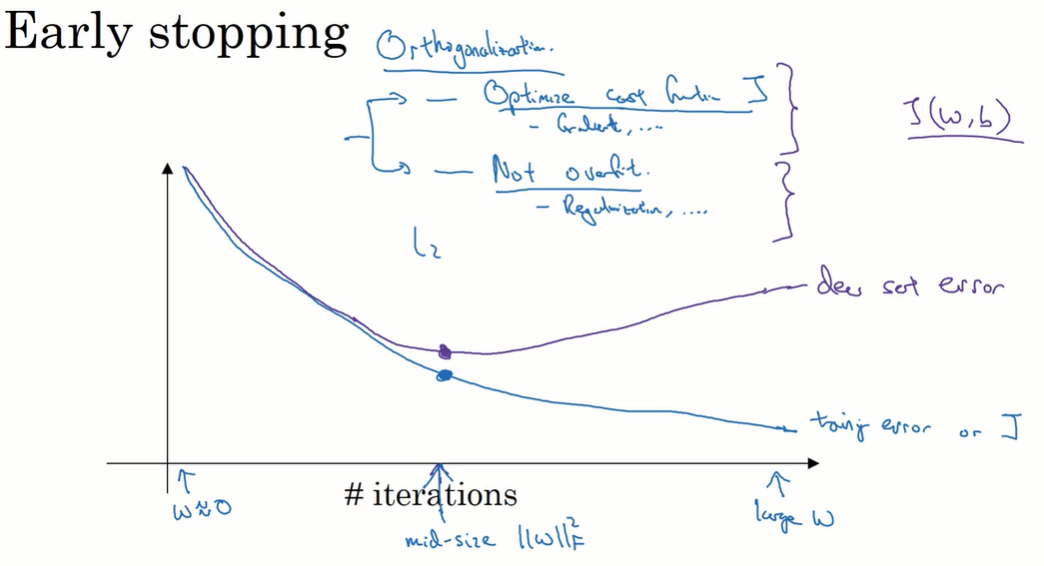 Early stopping
Orthogonalization.
— Optimize cost function J
- Gradient, ....
J(w,b)
— Not overfit.
- Regularization, ....
L2
dev set error
training error or J
# iterations
w≈0
mid-size ||w||²F
large w